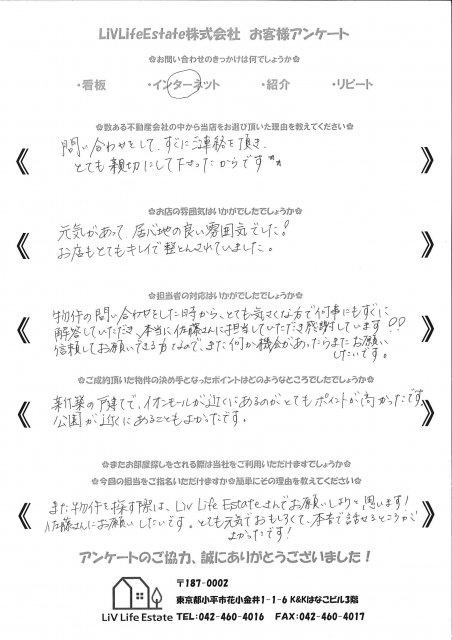 LiVLifeEstate株式会社 お客様アンケート
✿お問い合わせのきっかけは何でしょうか✿
・看板 ・インターネット ・紹介 ・リピート
✿数ある不動産会社の中から当店をお選び頂いた理由を教えてください✿
問い合わせをして、すぐにご連絡を頂き、
とても親切にして下さったからです
✿お店の雰囲気はいかがでしたでしょうか✿
元気があって、居心地の良い雰囲気でした!
お店もとてもキレイで整とんされていました。
✿担当者の対応はいかがでしたでしょうか✿
物件の問い合わせをした時から、とても気さくな方で何事にもすぐに
解答していただき、本当に佐藤さんに担当していただき感謝しています!!
信頼してお願いできる方なので、また何か機会があったらまたお願い
したいです。
✿ご成約頂いた物件の決め手となったポイントはどのようなところでしたでしょうか✿
新築の戸建てで、イオンモールが近くにあるのがとてもポイントが高かったです。
公園が近くにあることもよかったです。
✿またお部屋探しをされる際は当社をご利用いただけますでしょうか✿
✿今回の担当をご指名いただけますか✿簡単にその理由を教えてください✿
また物件を探す際は、Liv Life Estateさんでお願いしようと思います!
佐藤さんにお願いしたいです。とても元気でおもしろくて、本音で話せるところが
よかったです!
アンケートのご協力、誠にありがとうございました!
LiV Life Estate
〒187-0002
東京都小平市花小金井1-1-6 K&Kはなこビル3階
TEL:042-460-4016 FAX:042-460-4017